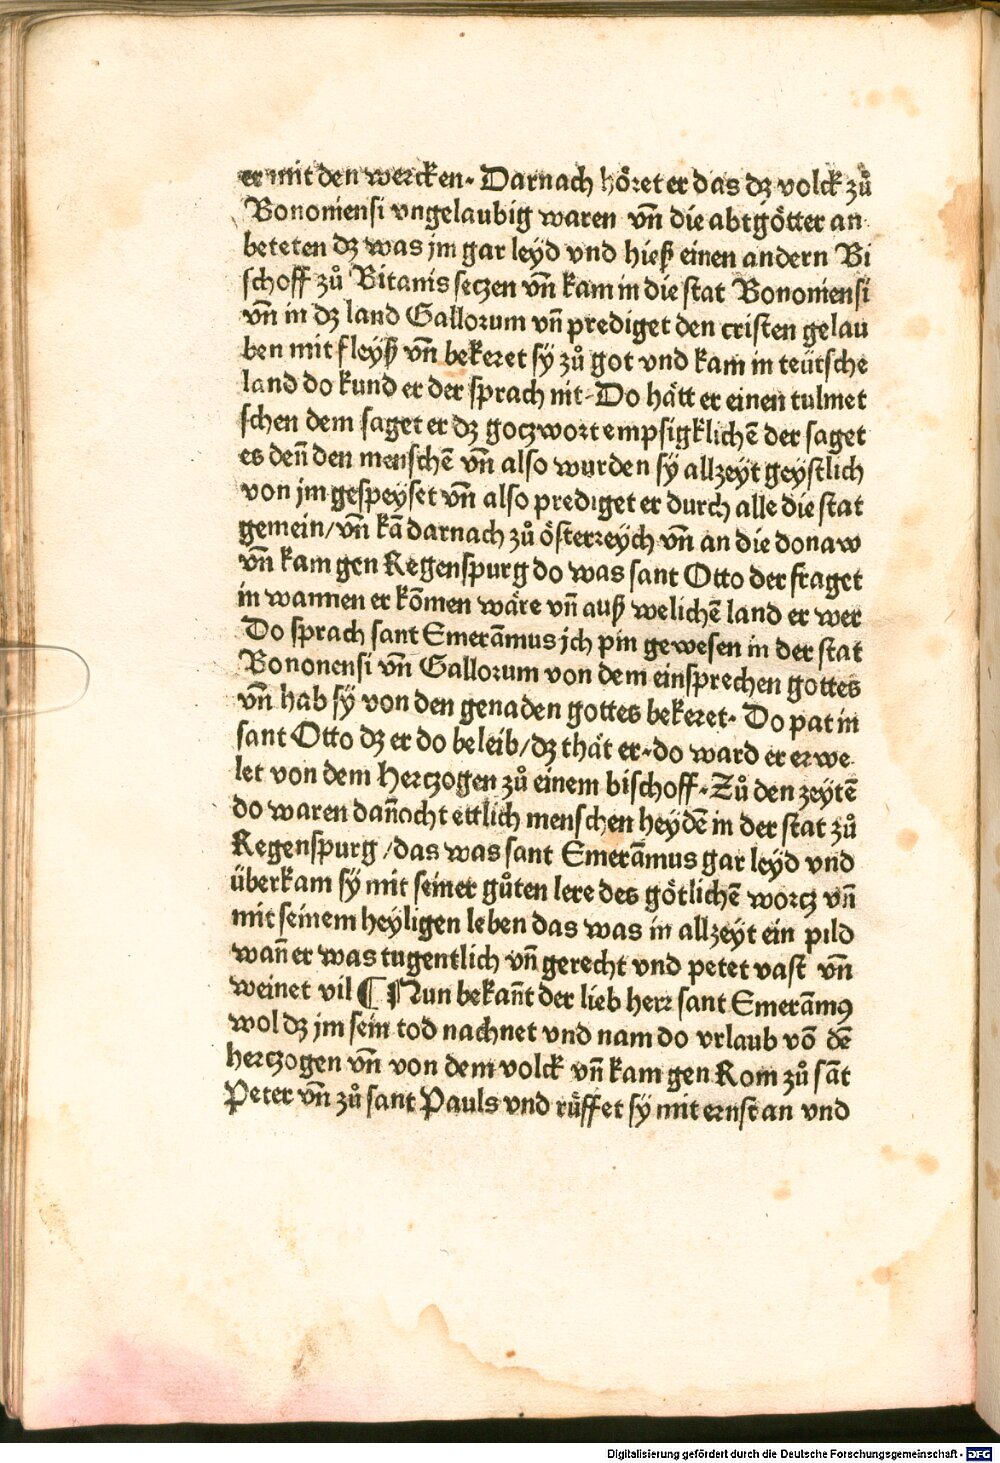 er mit den wercken. Darnach höret er das dz volck zů
Bononiensi vngelaubig waren vn̄ die abtgötter an
beteten dz was jm gar leyd vnd hieß einen andern Bi
schoff zů Bitanis seczen vn̄ kam in die stat Bononiensi
vn̄ in dz land Gallorum vn̄ prediget den cristen gelau
ben mit fleyß vn̄ bekeret sÿ zů got vnd kam in teütsche
land do kund er der sprach nit. Do hätt er einen tulmet
schen dem saget er dz goczwort empsigklichē der saget
es den̄ den menschē vn̄ also wurden sÿ allzeÿt geÿstlich
von jm gespeÿset vn̄ also prediget er durch alle die stat
gemein/vn̄ kā darnach zů österreÿch vn̄ an die donaw
vn̄ kam gen Regenspurg do was sant Otto der fraget
in wannen er kōmen wäre vn̄ auß welichē land er wer
Do sprach sant Emerāmus jch pin gewesen in der stat
Bononensi vn̄ Gallorum von dem einsprechen gottes
vn̄ hab sÿ von den genaden gottes bekeret. Do pat in
sant Otto dz er do beleib/dz thät er. do ward er erwe
let von dem Hertzogen zů einem bischoff. Zů den zeÿtē
do waren dan̄ocht ettlich menschen heÿdē in der stat zů
Regenspurg/das was sant Emerāmus gar leÿd vnd
überkam sÿ mit seiner gůten lere des götlichē worcz vn̄
mit seinem heÿligen leben das was in allzeÿt ein pild
wan̄ er was tugentlich vn̄ gerecht vnd petet vast vn̄
weinet vil ¶ Nun bekan̄t der lieb herr sant Emerāmꝰ
wol dz jm sein tod nachnet vnd nam do vrlaub vō dē
hertzogen vn̄ von dem volck vn̄ kam gen Rom zů sāt
Peter vn̄ zů sant Pauls vnd rüffet sÿ mit ernst an vnd
Digitalisierung gefördert durch die Deutsche Forschungsgemeinschaft - DFG